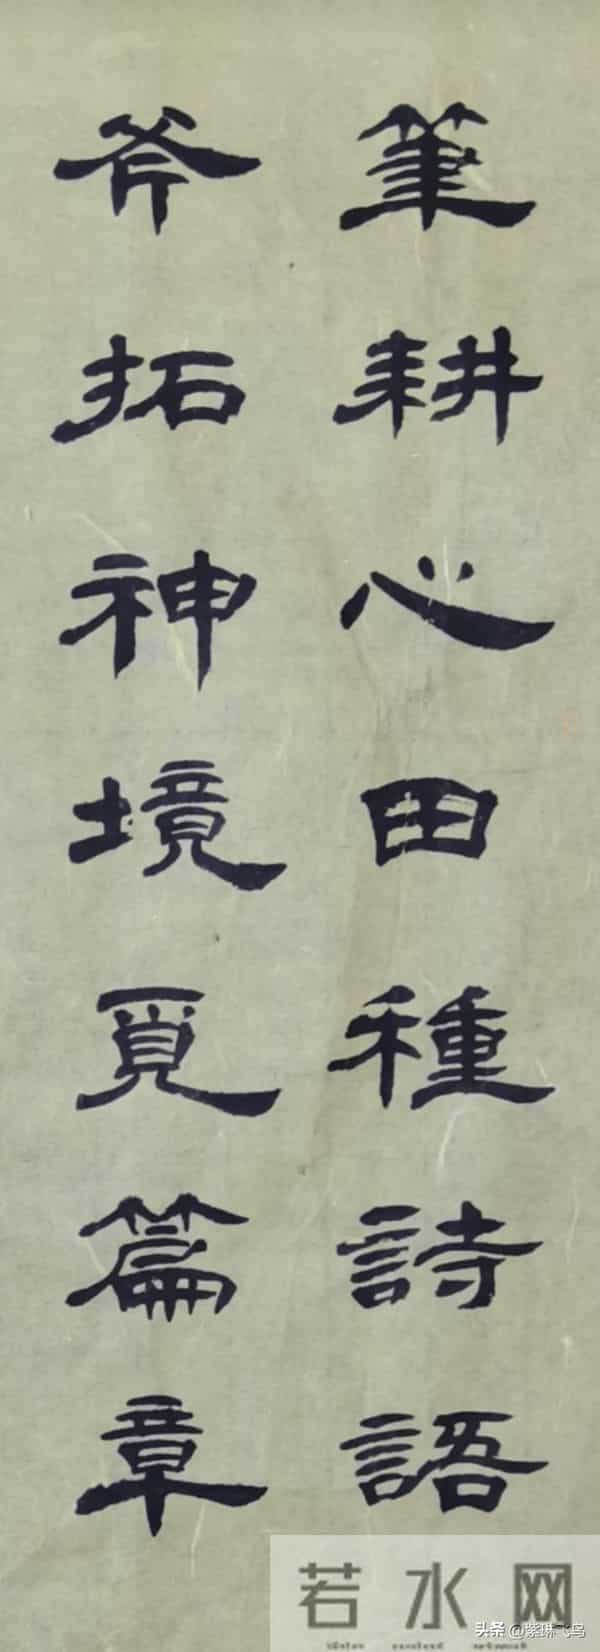 筆耕心田種詩語
斧拓神境覓篇章
若水网
头条 @紫琳飞鸟